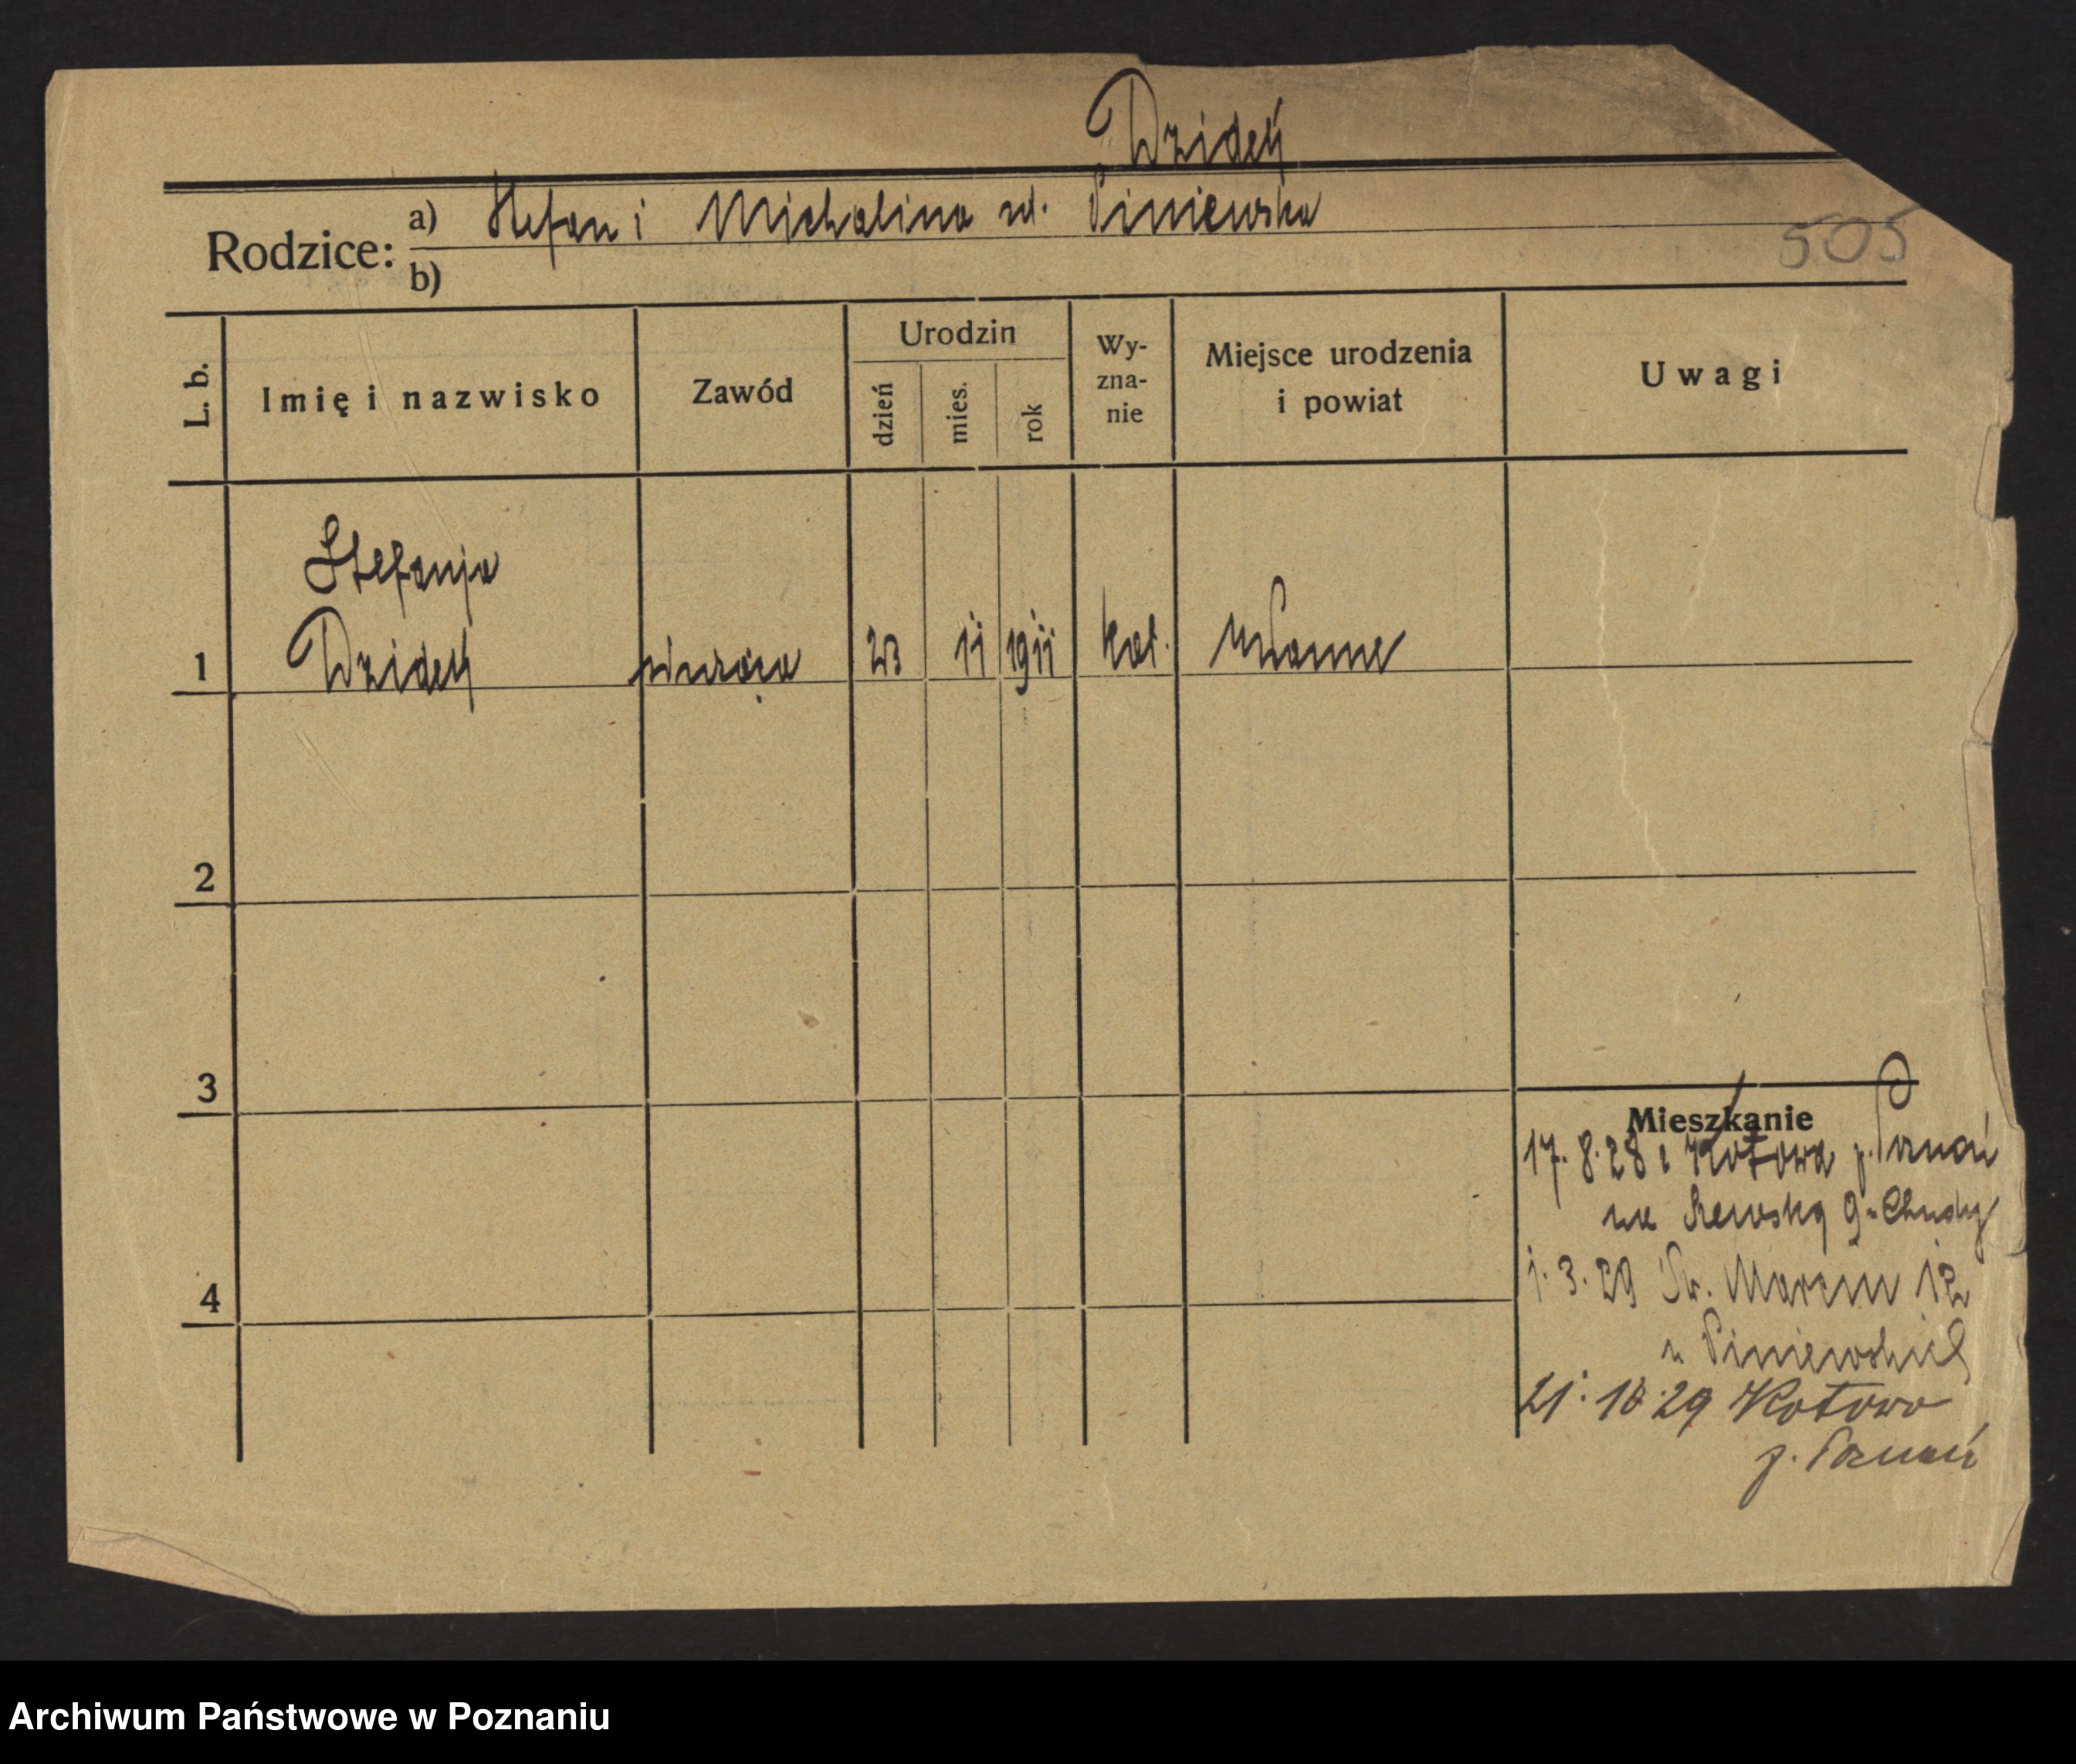 Dzideń
Rodzice:
a) Stefan i Michalina ur. Piniewska
b)
505
L. b.
Imię i nazwisko
Zawód
Urodzin
dzień
mies.
rok
Wy-
zna-
nie
Miejsce urodzenia
i powiat
Uwagi
Stefanja
1 Dzideń 23 11 1911 kat.
2
3
4
Mieszkanie
17. 8. 28 z Kotowa p. Poznań
Szewską 9 u Chudy
1. 3. 29 Św. Marcin 12
u Piniewskich
21. 10. 29 Kotowo
p. Poznań
Archiwum Państwowe w Poznaniu